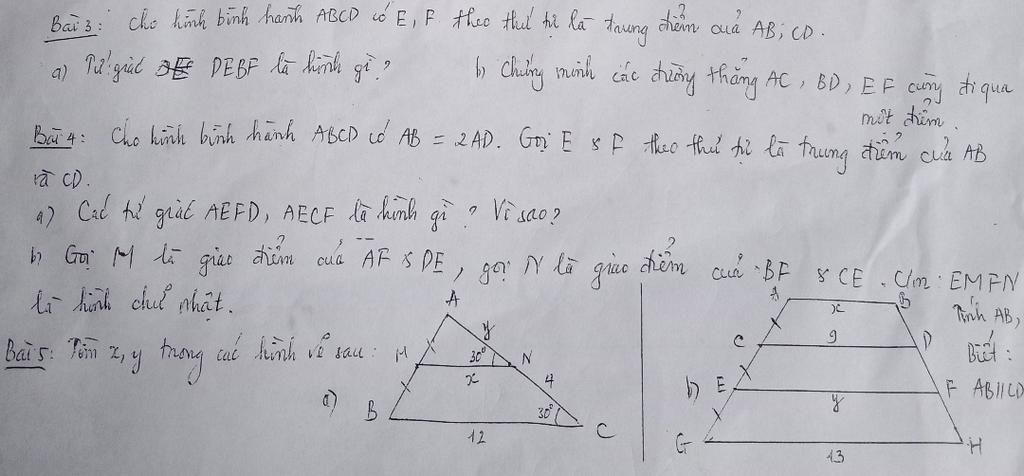 Bài 3: Cho hình bình hành ABCD có E, F theo thứ tự là trung điểm của AB; CD.
a) Tứ giác DEBF là hình gì? b) Chứng minh các đường thẳng AC, BD, EF cùng đi qua
một điểm.
Bài 4: Cho hình bình hành ABCD có AB = 2AD. Gọi E & F theo thứ tự là trung điểm của AB
và CD.
a) Các tứ giác AEFD, AECF là hình gì? Vì sao?
b) Gọi M là giao điểm của AF & DE, gọi N là giao điểm của BF & CE. C/m: EMFN
là hình chữ nhật.
Bài 5: Tìm x, y trong các hình vẽ sau:
a)
A
M
y
30°
N
x
4
B
30°
C
12
b)
A
x
B
C
9
D
E
y
F
G
13
H
Tính AB,
Biết:
AB//CD